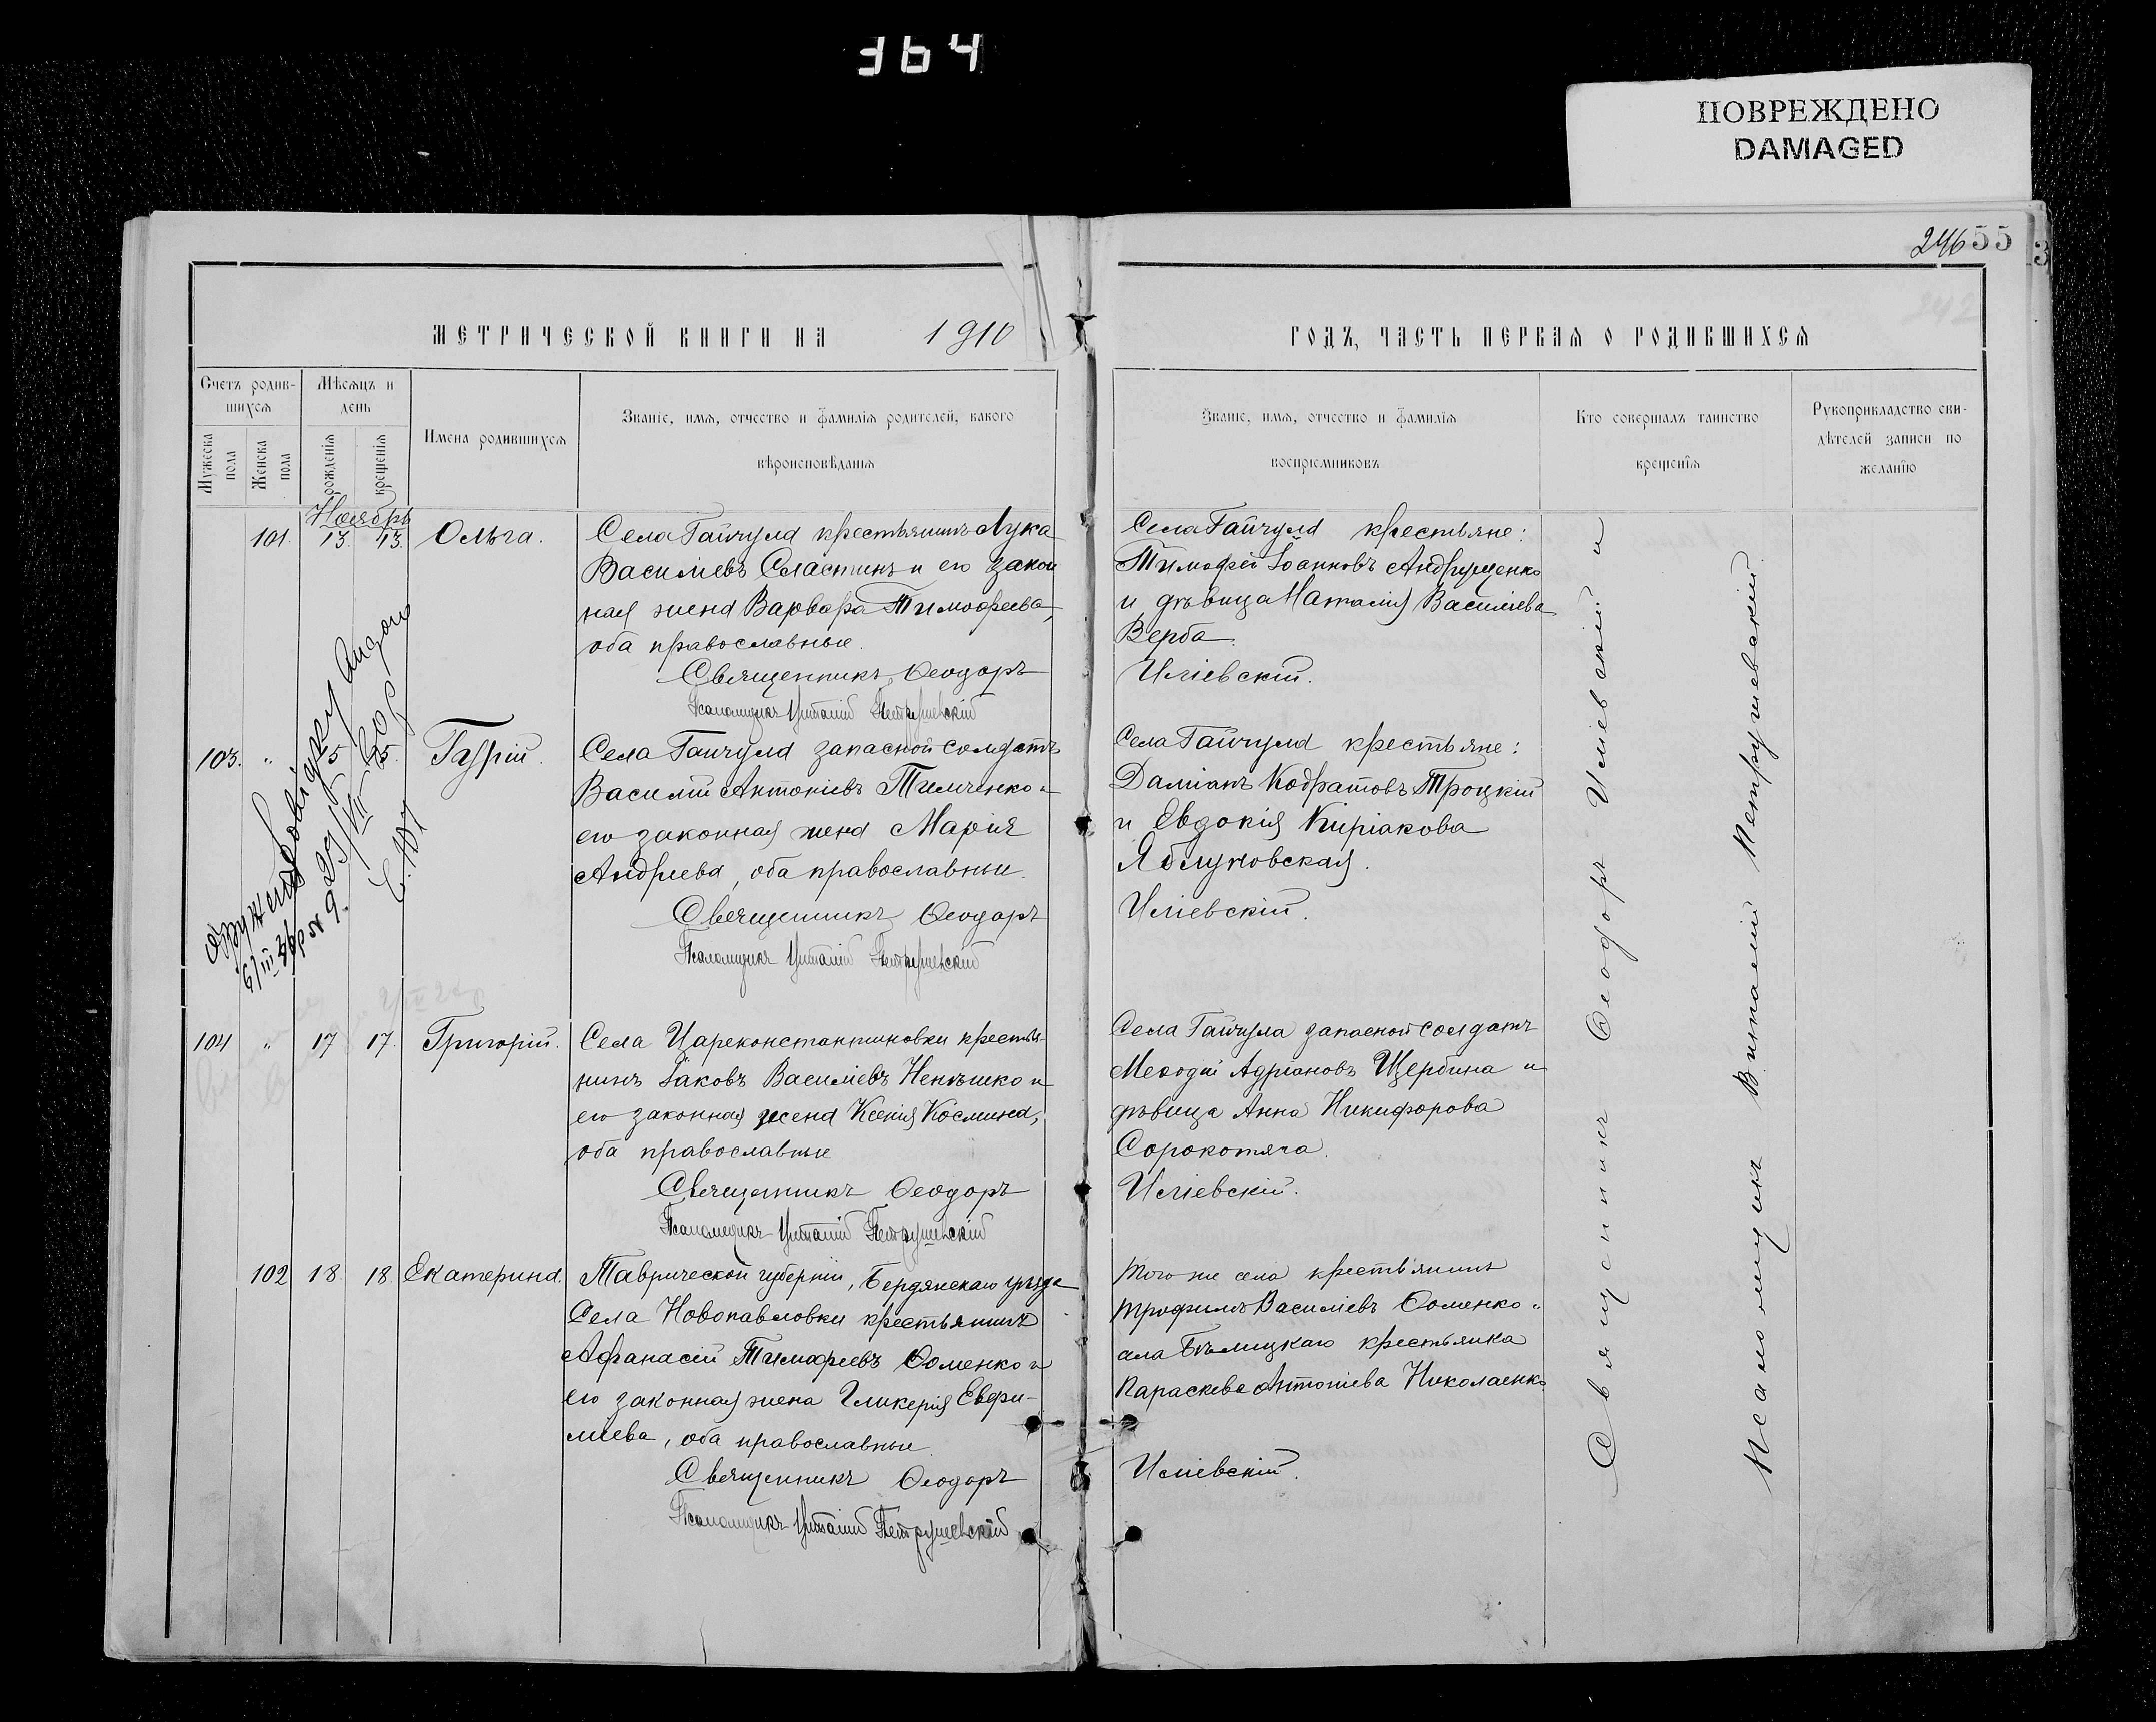 364
ПОВРЕЖДЕНО
DAMAGED
246 55
МЕТРИЧЕСКОЙ КНИГИ НА 1910
ГОДЪ, ЧАСТЬ ПЕРВАЯ О РОДИВШИХСЯ
Счетъ родив-
шихся
Мужеска пола
Женска пола
Мѣсяцъ и
день
рожденія
крещенія
Имена родившихся
Званіе, имя, отчество и фамилія родителей, какого
вѣроисповѣданія
Званіе, имя, отчество и фамилія
воспріемниковъ
Кто совершалъ таинство
крещенія
Рукоприкладство сви-
дѣтелей записи по
желанію
Ноябрь
101. 13. 13. Ольга.
Села Гайчула крестьянинъ Лука
Василіевъ Сластинъ и его закон
ная жена Варвара Тимофеева,
оба православные.
Священникъ Ѳеодоръ
Псаломщикъ Виталій Петрушевскій
Села Гайчула крестьяне:
Тимофей Іоанновъ Андрущенко
и дѣвица Наталія Василіева
Верба.
Иліевскій.
103. " 15 25. Гурій.
Села Гайчула запасной солдатъ
Василій Антоніевъ Тимченко и
его законная жена Марія
Андреева, оба православные.
Священникъ Ѳеодоръ
Псаломщикъ Виталій Петрушевскій
Села Гайчула крестьяне:
Даміанъ Кодратовъ Троцкій
и Евдокія Киріакова
Яблуновская.
Иліевскій.
104 " 17 17. Григорій.
Села Цареконстантиновки крестья-
нинъ Іаковъ Василіевъ Ненѣшко и
его законная жена Ксенія Космина,
оба православные
Священникъ Ѳеодоръ
Псаломщикъ Виталій Петрушевскій
Села Гайчула запасной солдатъ
Меѳодій Адріановъ Щербина и
дѣвица Анна Никифорова
Сорокотяга.
Иліевскій.
102 18. 18. Екатерина.
Таврической губерніи, Бердянскаго уѣзда
Села Новопавловки крестьянинъ
Афанасій Тимофеевъ Ѳоменко и
его законная жена Гликерія Евфи-
міева, оба православные.
Священникъ Ѳеодоръ
Псаломщикъ Виталій Петрушевскій
Того же села крестьянинъ
Трофимъ Василіевъ Ѳоменко и
села Бѣлицкаго крестьянка
Параскева Антоніева Николаенко
Иліевскій.
Священникъ Ѳеодоръ Иліевскій и
Псаломщикъ Виталій Петрушевскій.